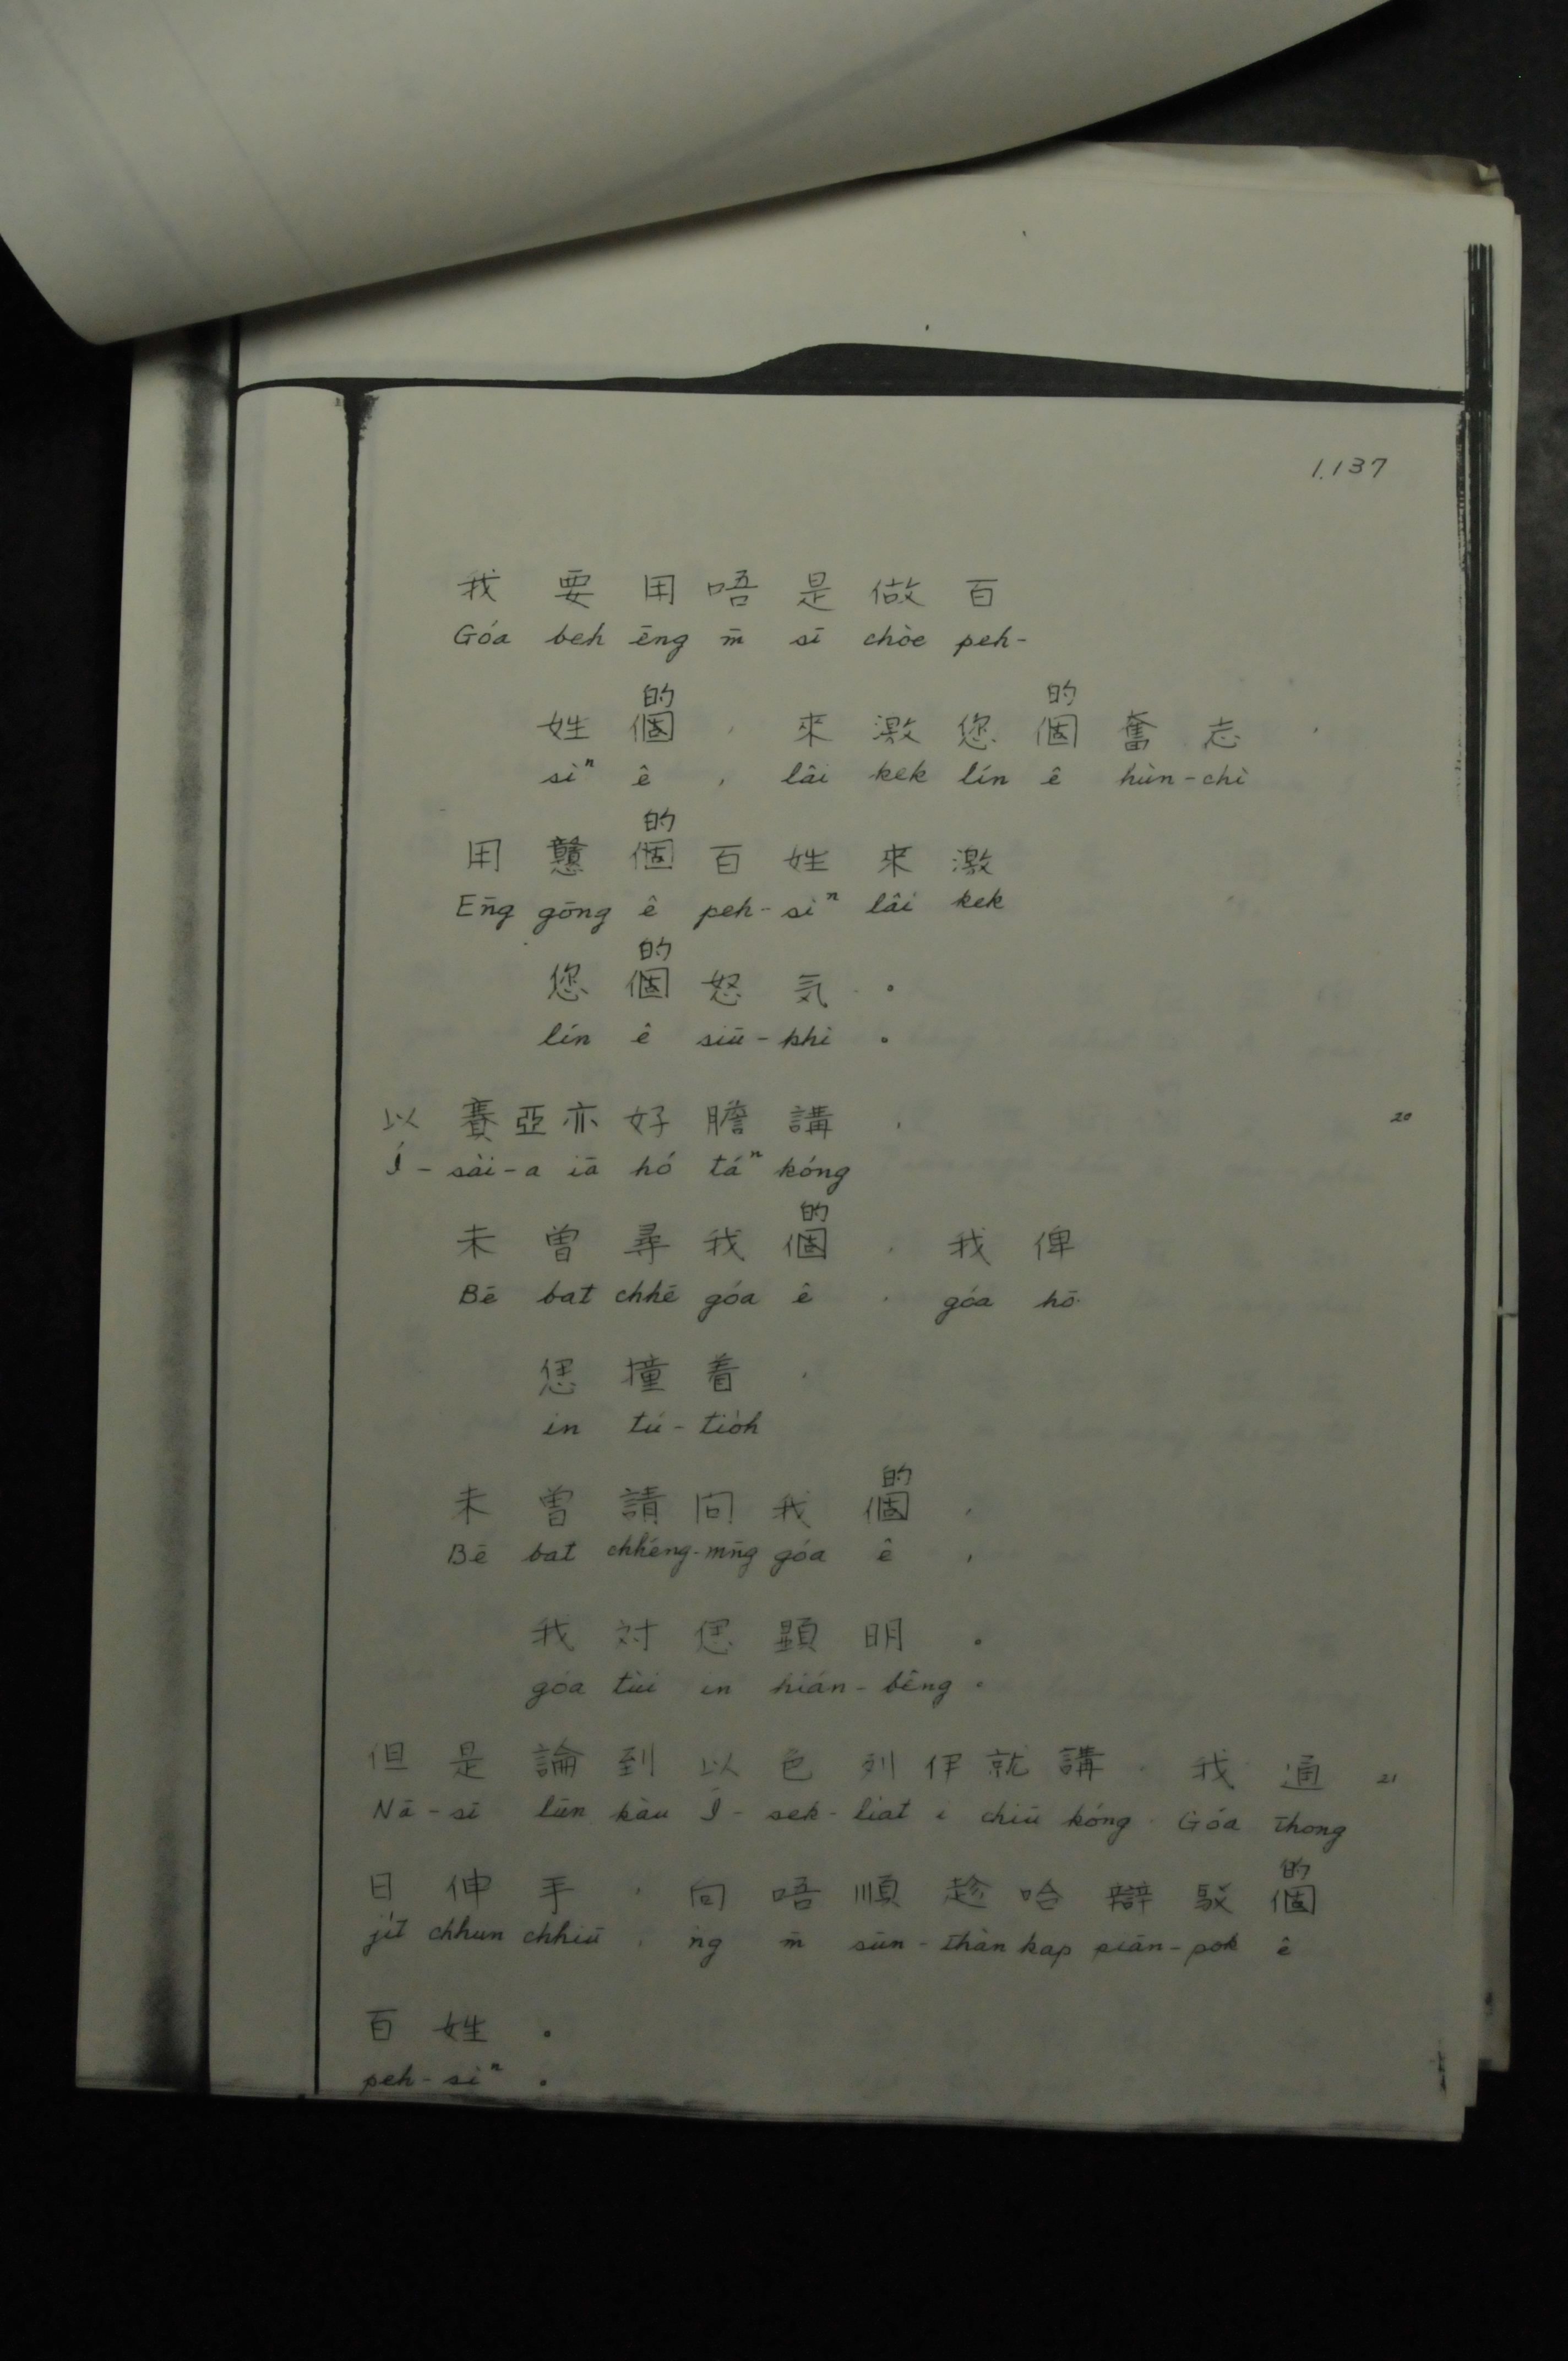 1.137
我要用唔是做百
Góa beh ēng m̄ sī chòe peh-
的 的
姓個，來激您個奮志，
sìⁿ ê , lâi kek lín ê hùn-chì
的
用戇個百姓來激
Ēng gōng ê peh-sìⁿ lâi kek
的
您個怒気。
lín ê siū-khì 。
以賽亞亦好膽講， 20
Í-sài-a iā hó táⁿ kóng
的
未曾尋我個，我俾
Bē bat chhē góa ê , góa hō͘
㤆撞着，
in tú-tio̍h
的
未曾請问我個，
Bē bat chhéng-mn̄g góa ê ,
我対㤆顕明。
góa tùi in hián-bêng 。
但是論到以色列伊就講，我通 21
Nā-sī lūn kàu Í-sek-liat i chiū kóng, Góa thong
的
日伸手，向唔順趁哈辯駁個
ji̍t chhun chhiú , ǹg m̄ sūn-thàn kap piān-pok ê
百姓。
peh-sìⁿ 。